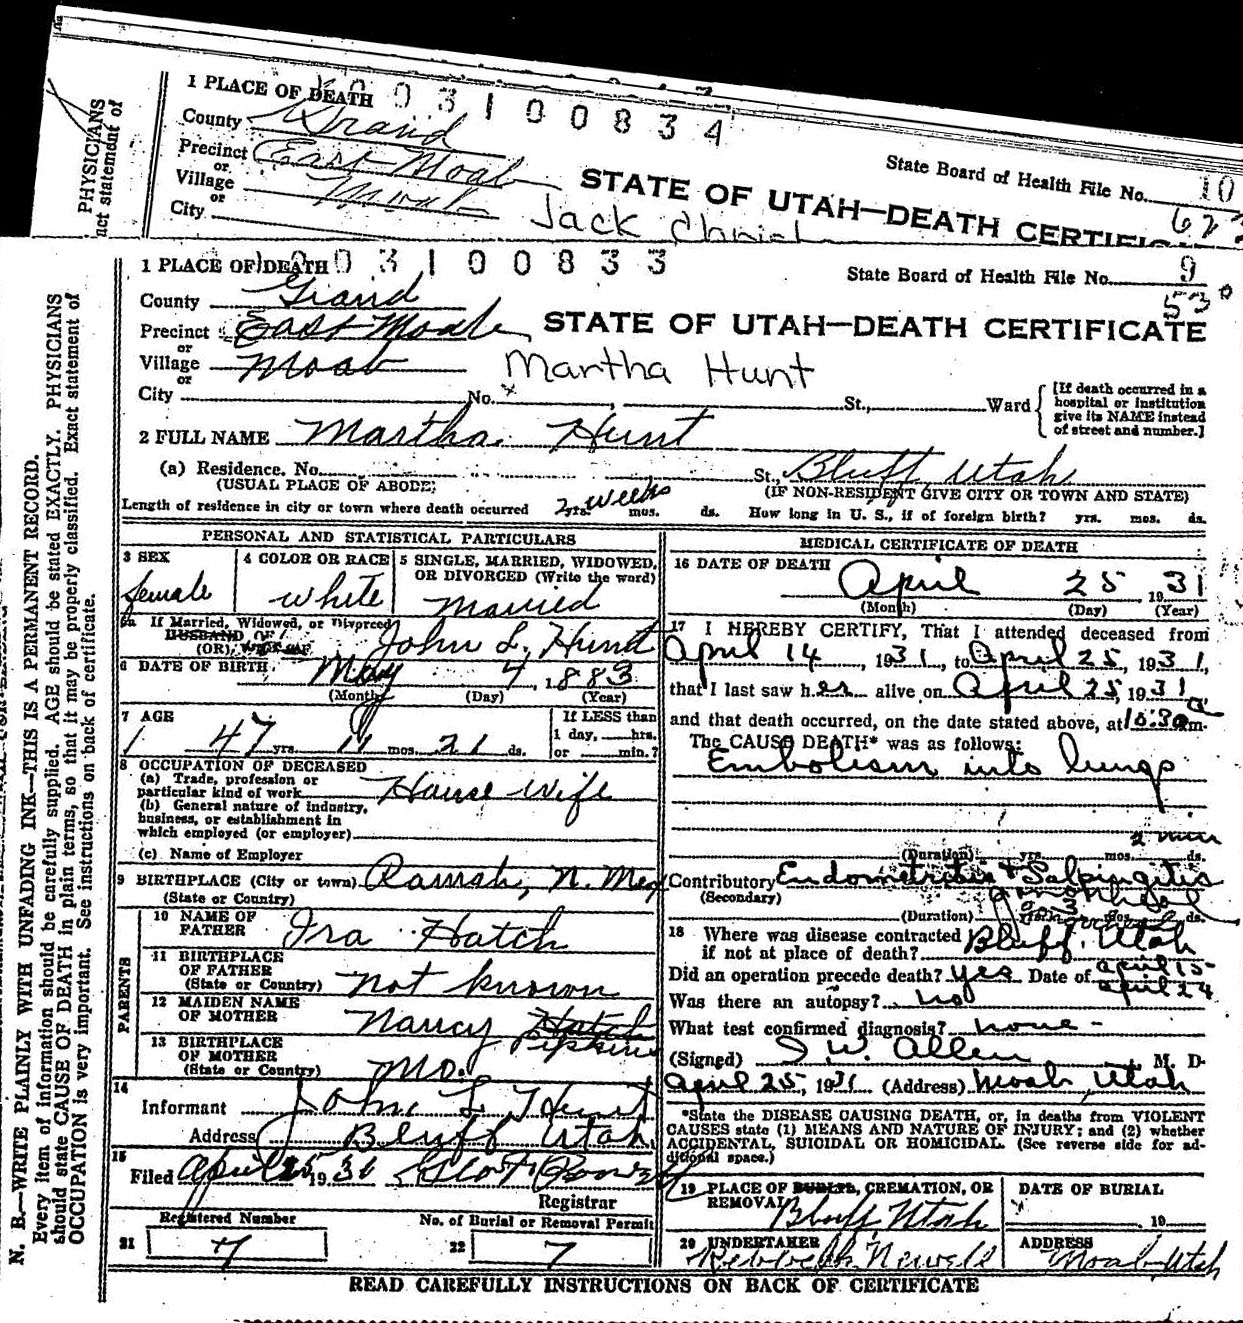 PHYSICIANS
act statement of
1 PLACE OF DEATH
003100834
County Grand
Precinct East Moab
or
Village Moab
or
City
State Board of Health File No. 10
62
STATE OF UTAH—DEATH CERTIFIC
Jack Christ
N. B.—WRITE PLAINLY WITH UNFADING INK—THIS IS A PERMANENT RECORD.
Every item of information should be carefully supplied. AGE should be stated EXACTLY. PHYSICIANS
should state CAUSE OF DEATH in plain terms, so that it may be properly classified. Exact statement of
OCCUPATION is very important. See instructions on back of certificate.
1 PLACE OF DEATH
003100833
State Board of Health File No. 9
53
County Grand
Precinct East Moab
or
STATE OF UTAH—DEATH CERTIFICATE
Village Moab
or
Martha Hunt
City No. , St., Ward
[If death occurred in a
hospital or institution
give its NAME instead
of street and number.]
2 FULL NAME Martha Hunt
(a) Residence. No. St., Bluff, Utah
(USUAL PLACE OF ABODE)
(IF NON-RESIDENT GIVE CITY OR TOWN AND STATE)
Length of residence in city or town where death occurred 2 weeks yrs. mos. ds. How long in U. S., if of foreign birth? yrs. mos. ds.
PERSONAL AND STATISTICAL PARTICULARS
3 SEX
female
4 COLOR OR RACE
white
5 SINGLE, MARRIED, WIDOWED,
OR DIVORCED (Write the word)
Married
5a If Married, Widowed, or Divorced
HUSBAND OF
(OR) WIFE OF John L. Hunt
6 DATE OF BIRTH May 4, 1883
(Month) (Day) (Year)
7 AGE
47 yrs. 11 mos. 21 ds.
If LESS than
1 day, hrs.
or min.?
8 OCCUPATION OF DECEASED
(a) Trade, profession or
particular kind of work House wife
(b) General nature of industry,
business, or establishment in
which employed (or employer)
(c) Name of Employer
9 BIRTHPLACE (City or town) Ramah, N. Mex
(State or Country)
PARENTS
10 NAME OF
FATHER Ira Hatch
11 BIRTHPLACE
OF FATHER
(State or Country) not known
12 MAIDEN NAME
OF MOTHER Nancy Hatch
Pipkins
13 BIRTHPLACE
OF MOTHER
(State or Country) Mo.
14
Informant John L Hunt
Address Bluff Utah
15
Filed April 25 1931
Registrar
Registered Number
21 7
No. of Burial or Removal Permit
22 7
MEDICAL CERTIFICATE OF DEATH
16 DATE OF DEATH
April 25 1931
(Month) (Day) (Year)
17 I HEREBY CERTIFY, That I attended deceased from
April 14, 1931, to April 25, 1931,
that I last saw her alive on April 25, 1931
and that death occurred, on the date stated above, at 10:30 a m.
The CAUSE DEATH* was as follows:
Embolism into lungs
2 min
(Duration) yrs. mos. ds.
Contributory Endometritis & Salpingitis
(Secondary)
(Duration) yrs. mos. ds.
18 Where was disease contracted
if not at place of death? Bluff, Utah
Did an operation precede death? yes Date of april 15-
april 24
Was there an autopsy? no
What test confirmed diagnosis? none -
(Signed) I. W. Allen, M. D.
April 25, 1931 (Address) Moab, Utah
*State the DISEASE CAUSING DEATH, or, in deaths from VIOLENT
CAUSES state (1) MEANS AND NATURE OF INJURY; and (2) whether
ACCIDENTAL, SUICIDAL OR HOMICIDAL. (See reverse side for ad-
ditional space.)
19 PLACE OF BURIAL, CREMATION, OR
REMOVAL
Bluff, Utah
DATE OF BURIAL
, 19
20 UNDERTAKER
Newell
ADDRESS
Moab, Utah
READ CAREFULLY INSTRUCTIONS ON BACK OF CERTIFICATE